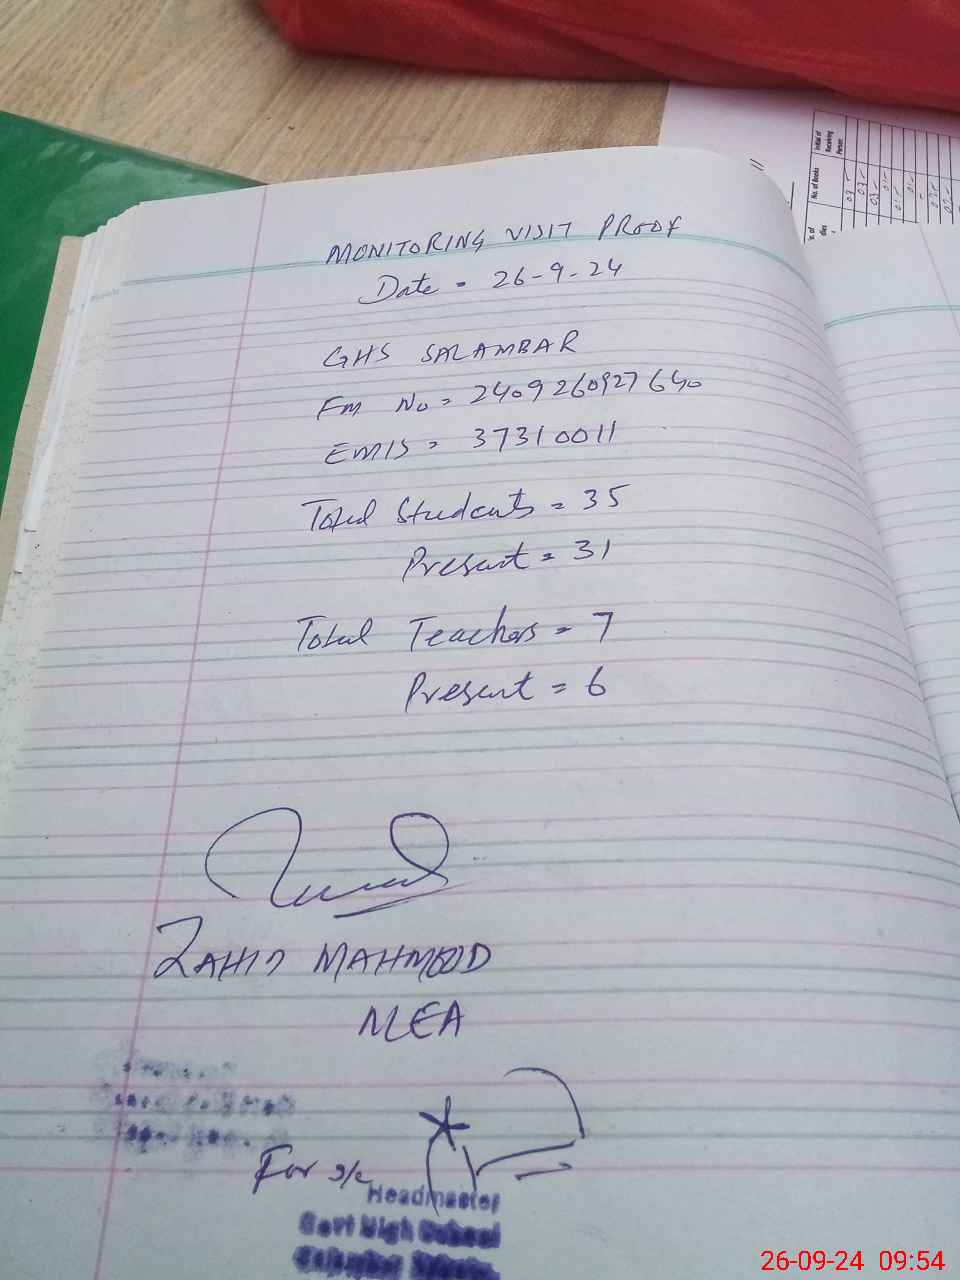 MONITORING VISIT PROOF
Date = 26-9-24
GHS SALAMBAR
Fm No = 2409260927640
EMIS = 37310011
Total Students = 35
Present = 31
Total Teachers = 7
Present = 6
ZAHID MAHMOOD
MEA
For
Headmaster
Govt High School
No. of Books
Initial of Receiving Person
26-09-24 09:54